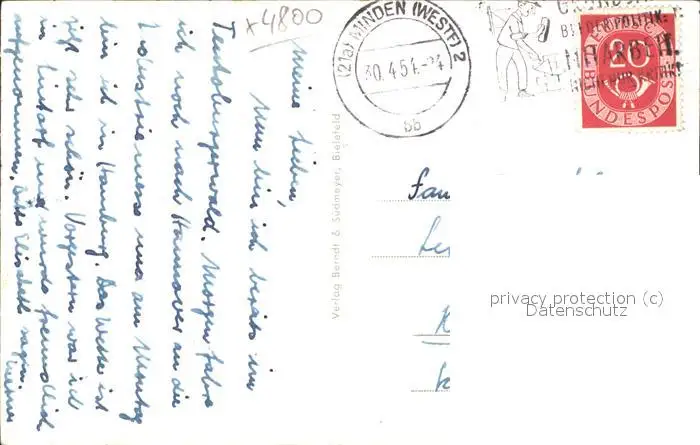 x4800
(21a) MINDEN (WESTF) 2
30.4.54.-24
bb
20
BUNDESPOST
Meine Lieben!
Nun bin ich bereits im
Teutoburgerwald. Morgen fahre
ich noch nach Hannover an die
Industriemesse und am Montag
bin ich in Hamburg. Das Wetter ist
sehr schön. Vorgestern war ich
in und wurde freundlich
aufgenommen, Elisabeth sagen.
Verlag Berndt & Südmeyer, Bielefeld
Fam
privacy protection (c)
Datenschutz